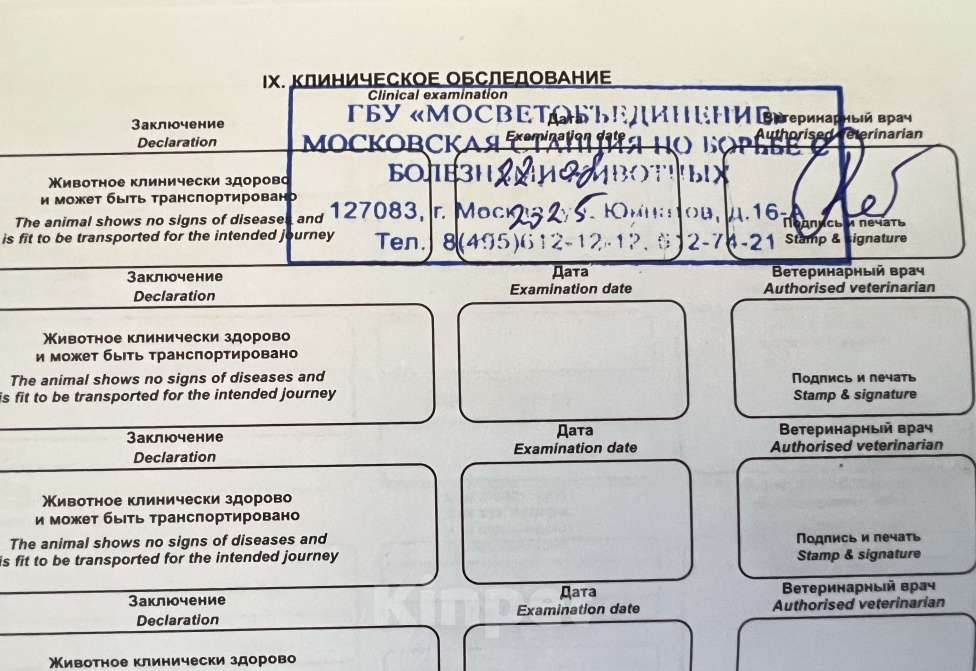 IX. КЛИНИЧЕСКОЕ ОБСЛЕДОВАНИЕ
Clinical examination
ГБУ «МОСВЕТОБЪЕДИНЕНИЕ»
МОСКОВСКАЯ СТАНЦИЯ ПО БОРЬБЕ С
БОЛЕЗНЯМИ ЖИВОТНЫХ
127083, г. Москва, ул. Юннатов, д.16-А
Тел. 8(495)612-12-12, 612-74-21
Заключение Дата Ветеринарный врач
Declaration Examination date Authorised veterinarian
Животное клинически здорово
и может быть транспортировано
The animal shows no signs of diseases and
is fit to be transported for the intended journey
22.08
2025
Подпись и печать
Stamp & signature
Заключение Дата Ветеринарный врач
Declaration Examination date Authorised veterinarian
Животное клинически здорово
и может быть транспортировано
The animal shows no signs of diseases and
is fit to be transported for the intended journey
Подпись и печать
Stamp & signature
Заключение Дата Ветеринарный врач
Declaration Examination date Authorised veterinarian
Животное клинически здорово
и может быть транспортировано
The animal shows no signs of diseases and
is fit to be transported for the intended journey
Подпись и печать
Stamp & signature
Заключение Дата Ветеринарный врач
Declaration Examination date Authorised veterinarian
Животное клинически здорово